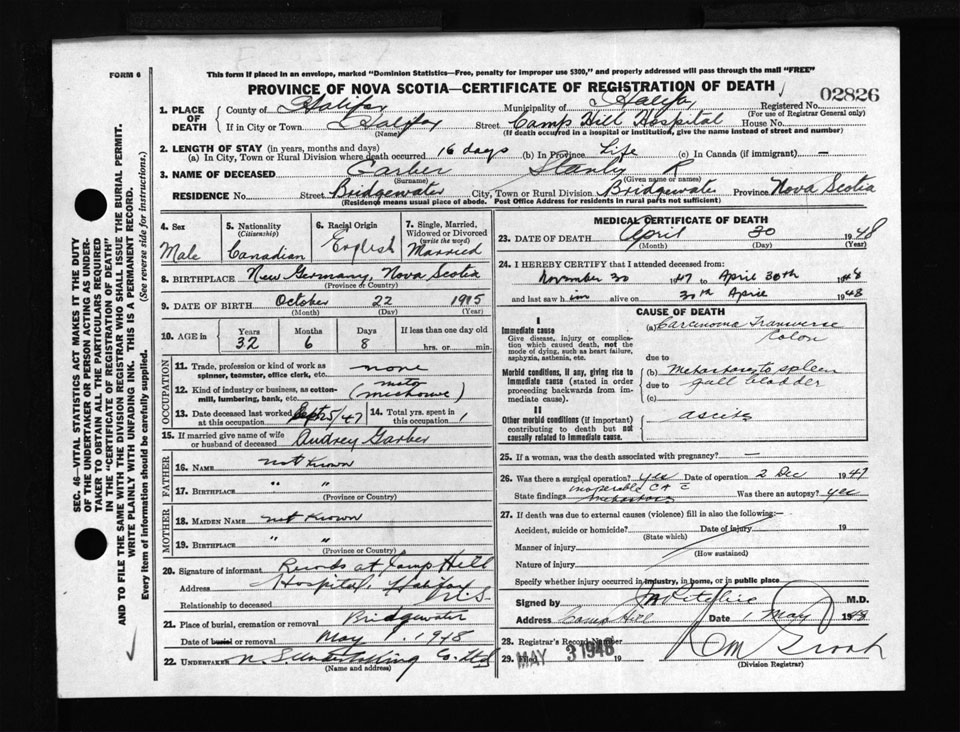 FORM 6
This form if placed in an envelope, marked "Dominion Statistics—Free, penalty for improper use $300," and properly addressed will pass through the mail "FREE"
PROVINCE OF NOVA SCOTIA—CERTIFICATE OF REGISTRATION OF DEATH
02826
1. PLACE OF DEATH
County of Halifax Municipality of Halifax Registered No.
(For use of Registrar General only)
If in City or Town Halifax Street Camp Hill Hospital House No.
(Name) (If death occurred in a hospital or institution, give the name instead of street and number)
2. LENGTH OF STAY (in years, months and days)
(a) In City, Town or Rural Division where death occurred 16 days (b) In Province Life (c) In Canada (if immigrant) —
3. NAME OF DECEASED Garber Stanley R
(Surname) (Given name or names)
RESIDENCE No. Street Bridgewater City, Town or Rural Division Bridgewater Province Nova Scotia
(Residence means usual place of abode. Post Office Address for residents in rural parts not sufficient)
4. Sex Male
5. Nationality (Citizenship) Canadian
6. Racial Origin English
7. Single, Married, Widowed or Divorced (write the word) Married
8. BIRTHPLACE New Germany, Nova Scotia
(Province or Country)
9. DATE OF BIRTH October 22 1915
(Month) (Day) (Year)
10. AGE in Years Months Days If less than one day old
32 6 8 hrs. or min.
OCCUPATION
11. Trade, profession or kind of work as spinner, teamster, office clerk, etc. none
12. Kind of industry or business, as cotton-mill, lumbering, bank, etc.
13. Date deceased last worked at this occupation Sept 25/47
14. Total yrs. spent in this occupation 1
15. If married give name of wife or husband of deceased Audrey Garber
FATHER
16. NAME not known
17. BIRTHPLACE " "
(Province or Country)
MOTHER
18. MAIDEN NAME not known
19. BIRTHPLACE " "
(Province or Country)
20. Signature of informant Records at Camp Hill
Address Hospital, Halifax
N.S.
Relationship to deceased
21. Place of burial, cremation or removal Bridgewater
Date of burial or removal May 1, 1948
22. UNDERTAKER N.S. Undertaking Co. Ltd
(Name and address)
MEDICAL CERTIFICATE OF DEATH
23. DATE OF DEATH April 30 1948
(Month) (Day) (Year)
24. I HEREBY CERTIFY that I attended deceased from:
November 30 1947 to April 30th 1948
and last saw him alive on 30th April 1948
CAUSE OF DEATH
I
Immediate cause
Give disease, injury or complication which caused death, not the mode of dying, such as heart failure, asphyxia, asthenia, etc.
(a) Carcinoma Transverse Colon
due to
Morbid conditions, if any, giving rise to Immediate cause (stated in order proceeding backwards from immediate cause).
(b) Metastases to spleen
due to gall bladder
(c)
II
Other morbid conditions (if important) contributing to death but not causally related to immediate cause.
ascites
25. If a woman, was the death associated with pregnancy? —
26. Was there a surgical operation? yes Date of operation 2 Dec 1947
State findings inoperable CA c metastases Was there an autopsy? yes
27. If death was due to external causes (violence) fill in also the following:—
Accident, suicide or homicide? Date of injury 19
(State which)
Manner of injury
(How sustained)
Nature of injury
Specify whether injury occurred in industry, in home, or in public place
Signed by M.D.
Address Camp Hill Date 1 May 1948
28. Registrar's Record Number
29. MAY 3 1948 19
(Division Registrar)
SEC. 46—VITAL STATISTICS ACT MAKES IT THE DUTY
OF THE UNDERTAKER OR PERSON ACTING AS UNDER-
TAKER TO OBTAIN ALL THE PARTICULARS REQUIRED
IN THE "CERTIFICATE OF REGISTRATION OF DEATH"
AND TO FILE THE SAME WITH THE DIVISION REGISTRAR WHO SHALL ISSUE THE BURIAL PERMIT.
WRITE PLAINLY WITH UNFADING INK. THIS IS A PERMANENT RECORD.
Every item of information should be carefully supplied. (See reverse side for instructions.)